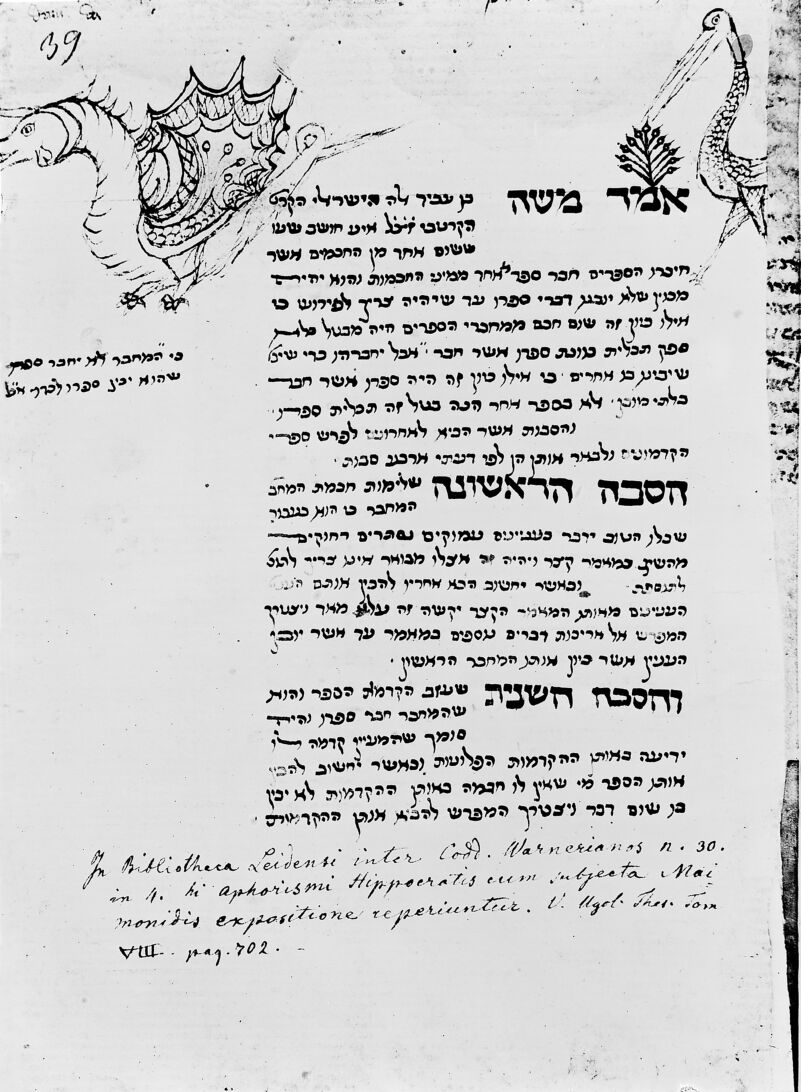 39
אמר משה
בן עביד לה הישראלי הקרט
הקרטבי זצל אינ חושב שעו
ששום אחר מן החכמים אשר
חיברו הספרים חבר ספר אחר ממיני החכמות והוא יהיה
מכוין שלא יובנו דברי ספרו עד שיהיה צריך לפירוש כי
אילו כוון זה שום חכם ממחברי הספרים היה מבטל בלא
ספק תכלית כוונת ספרו אשר חבר אבל יחברהו כדי שית
שיבינוהו אחרים כי אילו כוון זה היה ספרו אשר חבר
בלתי מובן לא בספר אחר הנה בטל זה תכלית ספרו
והסבות אשר הביאו לאחרונים לפרש ספרי
הקדמונים ולבאר אותן הן לפי דעתי ארבע סבות
כי המחבר לא יחבר ספרו
שהוא יבין ספרו לבדו אבל
הסבה הראשונה
שלימות חכמת המחב
המחבר כי הוא בעבור
שכלו הטוב ידבר בעניינים עמוקים נסתרים רחוקים
מהשיג במאמר קצר ויהיה זה אצלו מבואר אינו צריך לתוס
לתוספת וכאשר יחשוב הבא אחריו להבין אותם העני
העניינים מאותו המאמר הקצר יקשה זה עליו מאד ויצטרך
המפרש אל אריכות דברים נוספים במאמר עד אשר יובן
הענין אשר כיון אותו המחבר הראשון
והסבה השנית
שעזב הקדמות הספר והוא
שהמחבר חבר ספרו והיה
סומך שהמעיין קדמה לו
ידיעה באותן ההקדמות הפלוניות וכאשר יחשוב להבין
אותו הספר מי שאין לו חכמה באותן ההקדמות לא יבין
בו שום דבר ויצטרך המפרש להביא אותן ההקדמות
In Bibliotheca Leidensi inter Codd. Warnerianos n. 30.
in 4. hi aphorismi Hippocratis cum subjecta Mai
monidis expositione reperiuntur. V. Ugol. Thes. Tom
VIII. pag. 702.